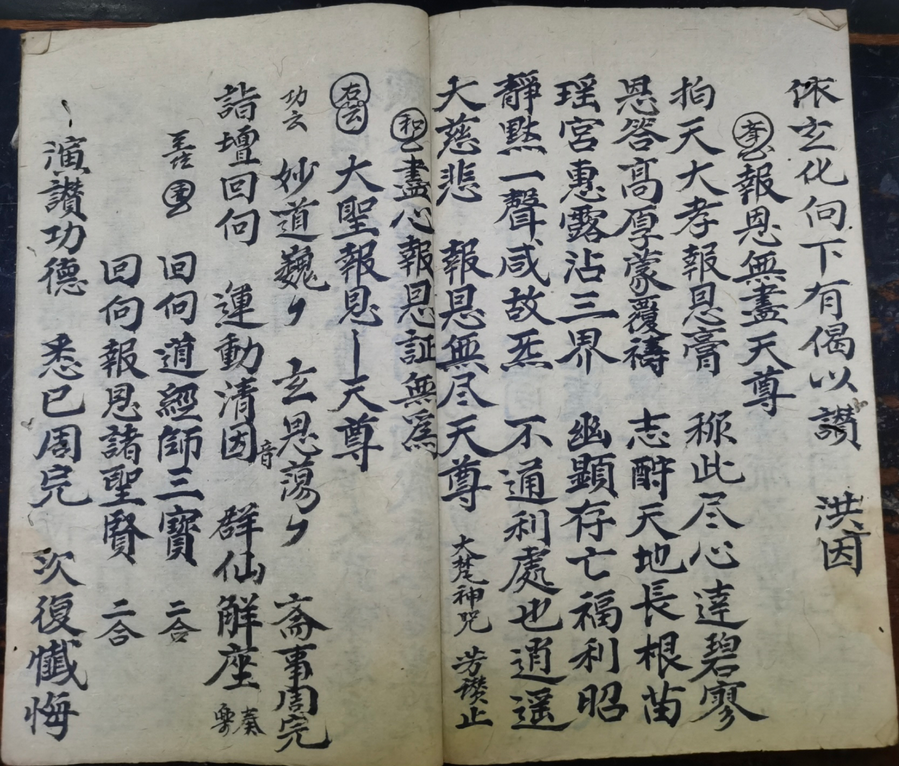 依玄化向下有偈以讚 洪因
孝云報恩無盡天尊
拍天大孝報恩膏 称此尽心達碧寥
恩答高厚蒙覆禱 志酧天地長根苗
瑶宮惠露沾三界 幽顯存亡福利昭
靜黙一聲咸故炁 不通利處也逍遥
大慈悲 報恩無尽天尊 大梵神咒 讚止
和云盡心報恩証無為
右云 大聖報恩丨天尊
功云 妙道巍々 玄恩蕩々 斋事周完
詣壇回向 運動清因音 群仙解座 奏
回向道經師三寶 二合
回向報恩諸聖賢 二合
演讚功德 悉已周完 次復懺悔